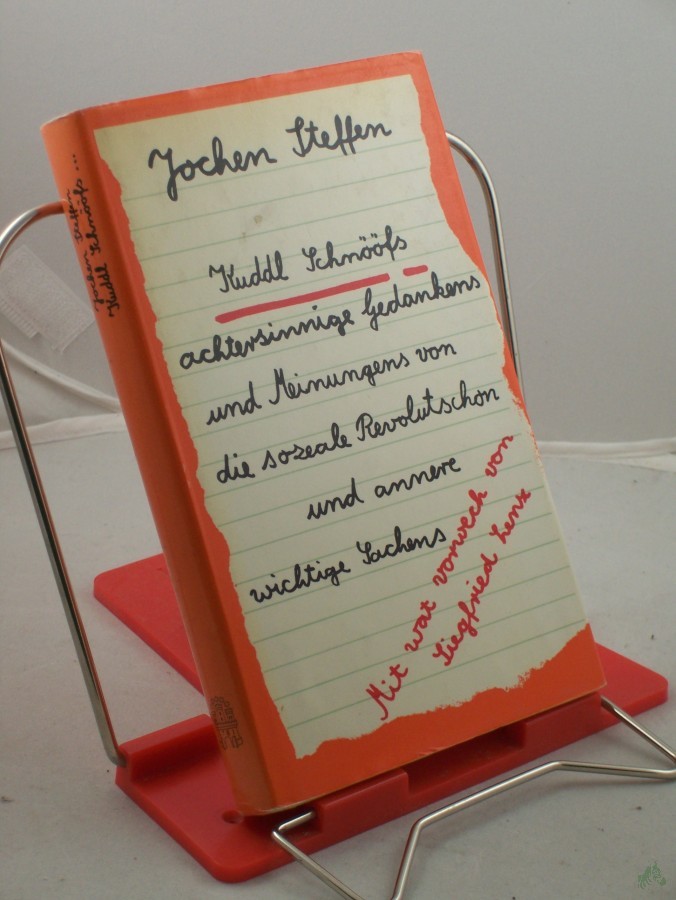 Jochen Steffen
Kuddl Schnööfs
achtersinnige Gedankens
und Meinungens von
die sozeale Revolutschon
und annere
wichtige Sachens
Mit wat vorwech von
Siegfried Lenz
Jochen Steffen
Kuddl Schnööfs ...